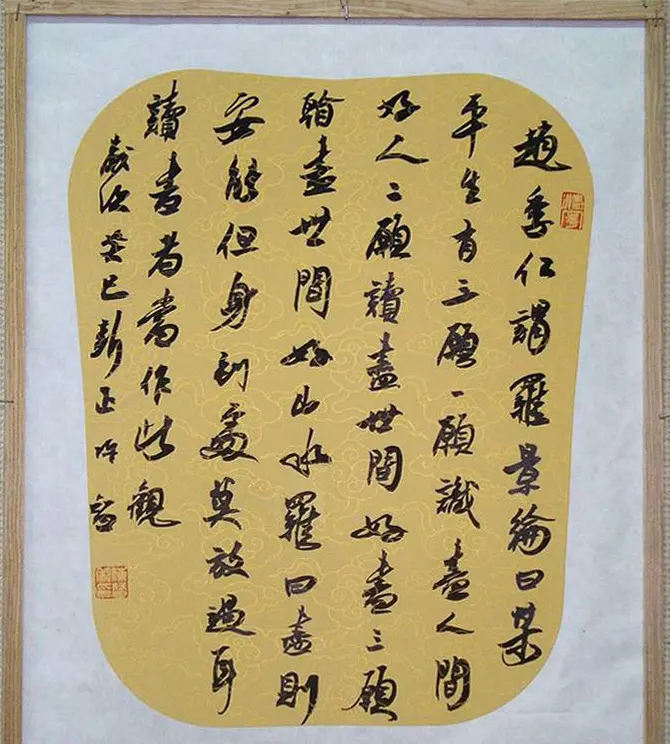 趙季仁謂羅景綸曰某
平生有三願一願識盡人間
好人二願讀盡世間好書三願
盡世間好山水羅曰盡則
安能但身到處莫放過耳
讀書者當作此觀
歲次癸巳新正許